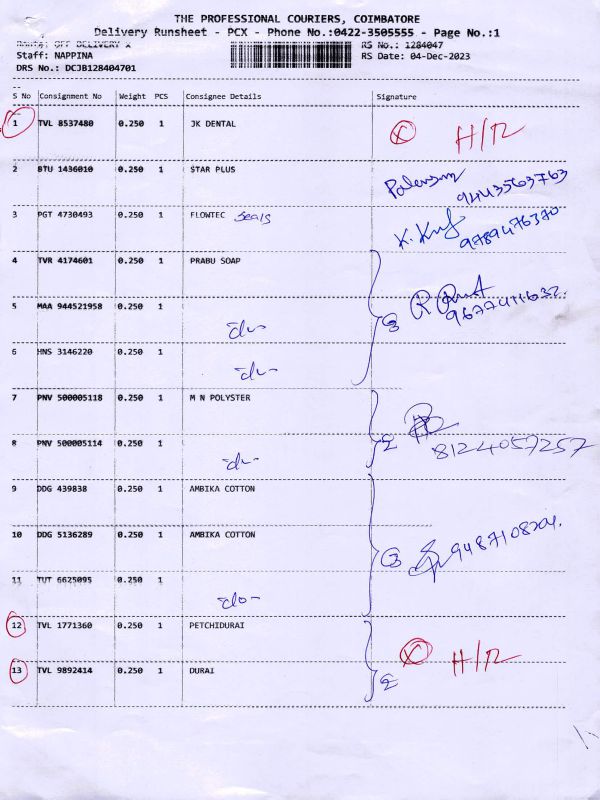 THE PROFESSIONAL COURIERS, COIMBATORE
Delivery Runsheet - PCX - Phone No.:0422-3505555 - Page No.:1
Route: OFF DELIVERY X RS No.: 1284047
Staff: NAPPINA RS Date: 04-Dec-2023
DRS No.: DCJB128404701
S No Consignment No Weight PCS Consignee Details Signature
1 TVL 8537480 0.250 1 JK DENTAL X H/R
2 BTU 1436010 0.250 1 STAR PLUS 9443563763
3 PGT 4730493 0.250 1 FLOWTEC Seals K. 9789476370
4 TVR 4174601 0.250 1 PRABU SOAP
5 MAA 944521958 0.250 1 -do- 3 9677411632
6 HNS 3146220 0.250 1 -do-
7 PNV 500005118 0.250 1 M N POLYSTER
8 PNV 500005114 0.250 1 -do- 2 8124057257
9 DDG 439838 0.250 1 AMBIKA COTTON
10 DDG 5136289 0.250 1 AMBIKA COTTON 3 9487108204.
11 TUT 6625095 0.250 1 -do-
12 TVL 1771360 0.250 1 PETCHIDURAI X H/R
13 TVL 9892414 0.250 1 DURAI 2